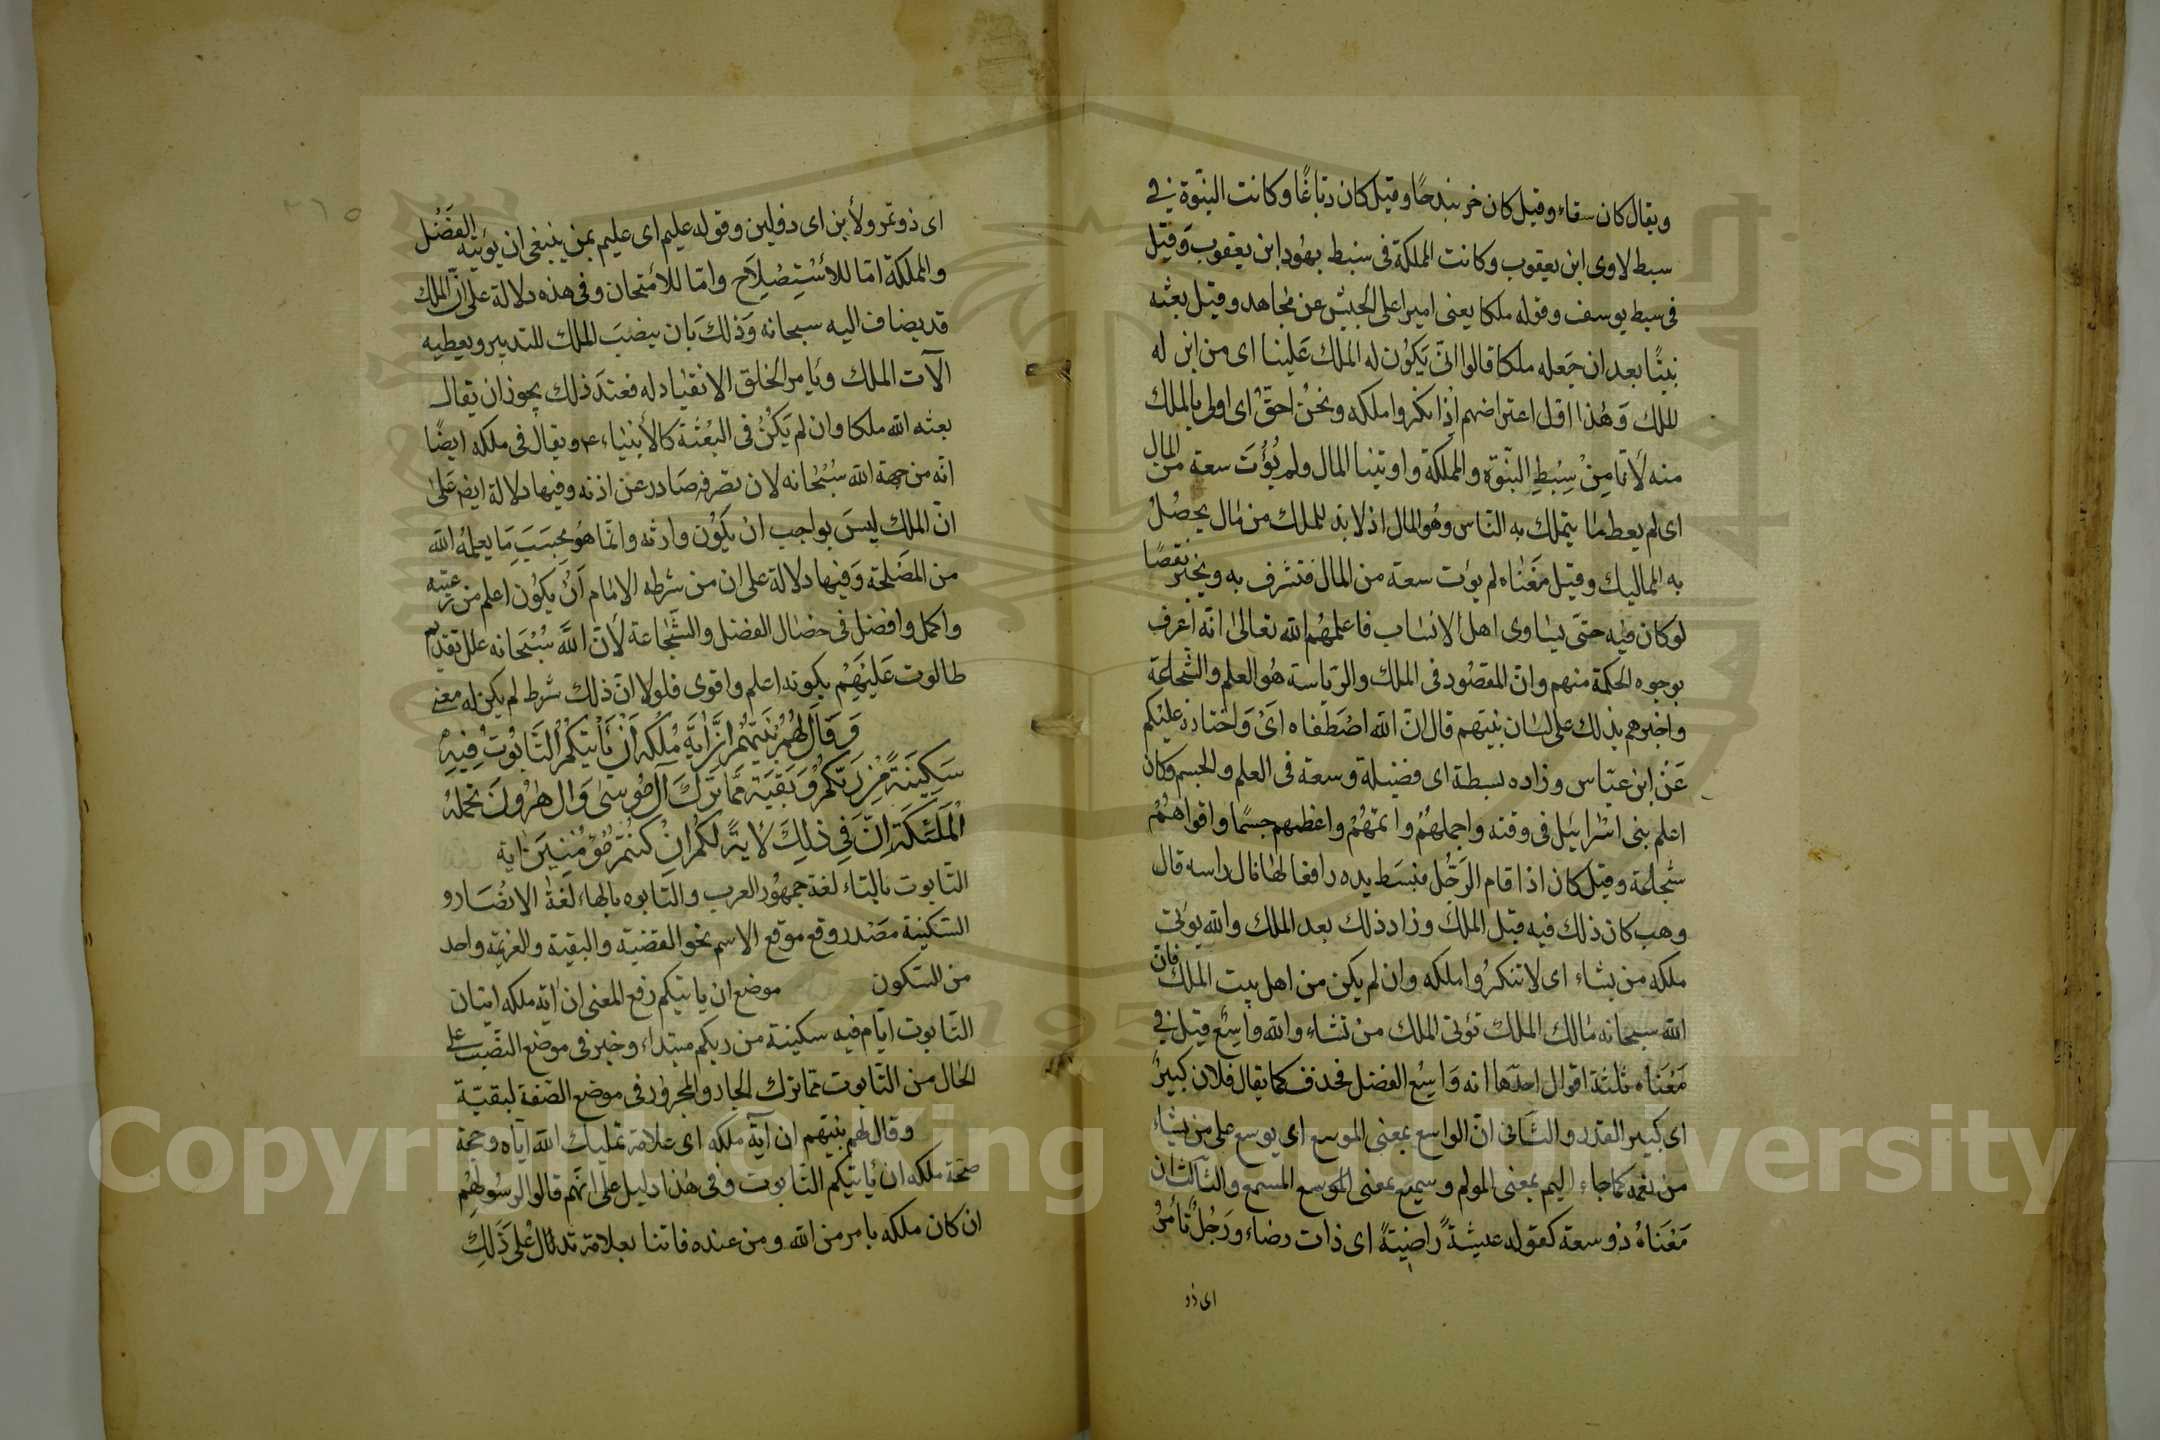 ويقال كان سقاء وقيل كان خربندجًا وقيل كان دباغًا وكانت النبّوة في
سبط لاوى ابن يعقوب وكانت المملكة فى سبط يهود ابن يعقوب وَقيل
فى سبط يوسف وقوله ملكا يعنى اميرا على الجيش عن مجاهد وقيل بعثه
نبيًّا بعد ان جَعله ملكا قالوا انّى يَكوُن له الملك عَلينا اى من اين له
الملك وَهٰذا اوّل اعتراضهم اذ انكروا ملكه ونحنُ احَقّ اى اولى بالملك
منه لأنّا مِنْ سِبْطِ النبّوة والمملكة واوتينا المال ولم يُؤْتَ سعة من المال
اى لم يعط ما يتملك به الناس وهُو المال اذ لا بد للملك من مال يحصُلُ
به المماليك وقيل مَعْناه لم يؤت سعة من المال فتشرف به ويجبر نقصًا
لو كان فيه حتّى يساوى اهل الانساب فاعلمهُم الله تعالىٰ انّه اعرف
بوجوه الحكمة منهم وانّ المقصُود فى الملك والرّياسة هُو العلم والشّجاعة
واخبرهم بذلك على لسان نبيّهم قال انّ الله اصْطَفاه اىْ وَاختاره عليكم
عَنْ ابن عبّاس وزاده بسطة اى فضيلة وسعة فى العلم والجسم وكان
اعلم بنى اسْرائيل فى وقته واجملهُمْ واتمّهُمْ واعظمهم جسمًا واقواهُمْ
شجاعة وقيل كان اذا قام الرّجُل فبسَط يده رافعا لها نال راسه قال
وهب كان ذلك فيه قبل الملك وزاد ذلك بعد الملك والله يؤتى
ملكه من يشاء اى لا تنكرُوا ملكه وان لم يكن من اهل بيت الملك فانّ
الله سبحانه مالك الملك تؤتى الملك منْ تشاء والله وٰاسِعٌ قيل فى
مَعْناه ثلثة اقوال احدها انه وَاسِع الفضل فحذف كما يقال فلان كبيرٌ
اى كبير القدر والثّانى انّ الواسع بمعنى الموسع اى يوسع على من يشاء
من نعمه كما جاء اليم بمعنى المولم وسميع بمعنى الموسع المسمع والثّالث ان
مَعْنَاهُ ذو سعة كقوله عيشةً راضِيةً اى ذات رضاء ورَجُلٌ تأمرُ
اى ذو
اى ذو تمر ولأبن اى ذو لبن وقوله عليم اى عليم بمن ينبغى ان يؤتيه الفضْل
والمملكة امّا للأسْتِصْلاَح وامّا للأمتحان وفى هذه دلالة على انّ الملك
قد يضاف اليه سبحانه وَذلكَ بان ينصَبَ الملك للتدبير ويعطيه
الآت الملك ويأمر الخلق الانقياد له فعندَ ذلك يجوز ان يقال
بعثه الله ملكا وان لم يَكنُ فى البعْثة كالأنبياء ع ويقال فى ملكه ايضًا
انّه من جهة الله سُبْحانه لان تصرفه صَادر عن اذنه وفيها دلالة ايضًا عَلىٰ
انّ الملك ليسَ بواجب ان يكوُن وارثه وانّما هُو بحِسَبَ مَا يعلمُهُ الله
من المصْلحة وَفيها دلالة على ان من شرط الامام اَنْ يكوُن اعلم من رعيّته
واكمل وافضل فى خصال الفضل والشّجاعة لأنّ اللّٰه سُبْحَانه علل تقديم
طالوت عَليْهِمْ بكونه اعلم واقوى فلولا انّ ذلك شرط لم يكن له معنى
وَقالَ لَهُمْ نَبيّهُمْ اِنَّ اٰيَةَ مُلْكِه اَنْ يَأْتِيَكُمُ التَّابُوتُ فِيهِ
سَكِينَةٌ مِنْ رَبِّكُمْ وَبَقِيَّةٌ مِمَّا تَرَكَ آلُ مُوسىٰ وَآل هٰرُونَ تَحْملهُ
اْلمَلئِكَةُ اِنَّ فِى ذلِكَ لَآيةً لَكُمْ اِنْ كُنْتُمْ مُؤْمِنِينَ اٰية
التابوت بالتاء لغة جمهُور العرب والتابوه بالهاء لغة الانصَار و
السّكينة مَصْدر وقع موقع الاسم نحو القضيّة والبقية والعزيمة واحد
من السّكون موضع ان ياتيكم رفع المعنى ان اٰية ملكه اتيان
التّابوت ايّاكم فيه سكينة من ربكم مبتداء وخبر فى موضع النصْب على
الحال من التّابوت ممّا ترك الجار والمجرُور فى موضع الصّفة لبقيّة
وقال لهم نبيّهم ان آية ملكه اى علامة تمليك الله ايّاه وحجة
صحّة ملكه ان يأتيكم التّابوت وفى هٰذا دليل على انّهم قالوا لرسُولهُم
ان كان ملكه بامر من الله ومن عنده فاتنا بعلامة تدلّ عَلىٰ ذٰلِكَ